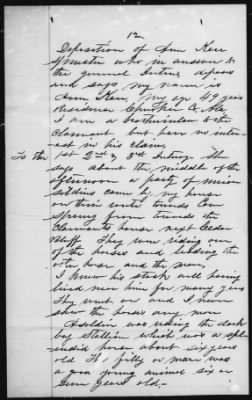 12
Deposition of Ann Kerr
Spinster who in answer to
the general Interr, deposes
and says my name is
Ann Kerr, My age 49 years
Residence Cherokee Co Ala
I am a to the
Claimant but have no inter-
est in his claim,
To the 1st 2nd & 3rd Interrg. She
says about the middle of the
afternoon a party of union
soldiers came by my house
on their way towards Cave
Spring from towards the
Claimants house near Cedar
Bluff. They were riding one
of the horses and leading the
other horse and the mare,
I knew his stock well having
lived near him for many years
They went on and I never
saw the horses any more
A soldier was riding the dark
bay Stallion which was a spl-
endid horse about six years
old The filly or mare was
a good young animal six or
seven years old,-